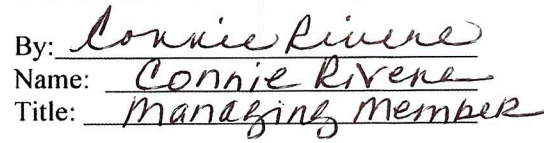 By: Connie Rivere
Name: Connie Rivere
Title: Managing Member